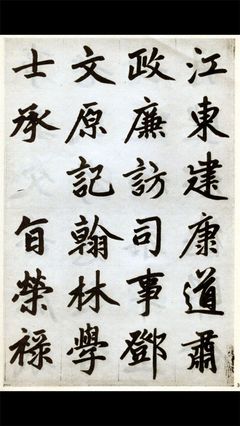 江東建康道肅
政廉訪司事鄧
文原記翰林學
士承旨榮祿